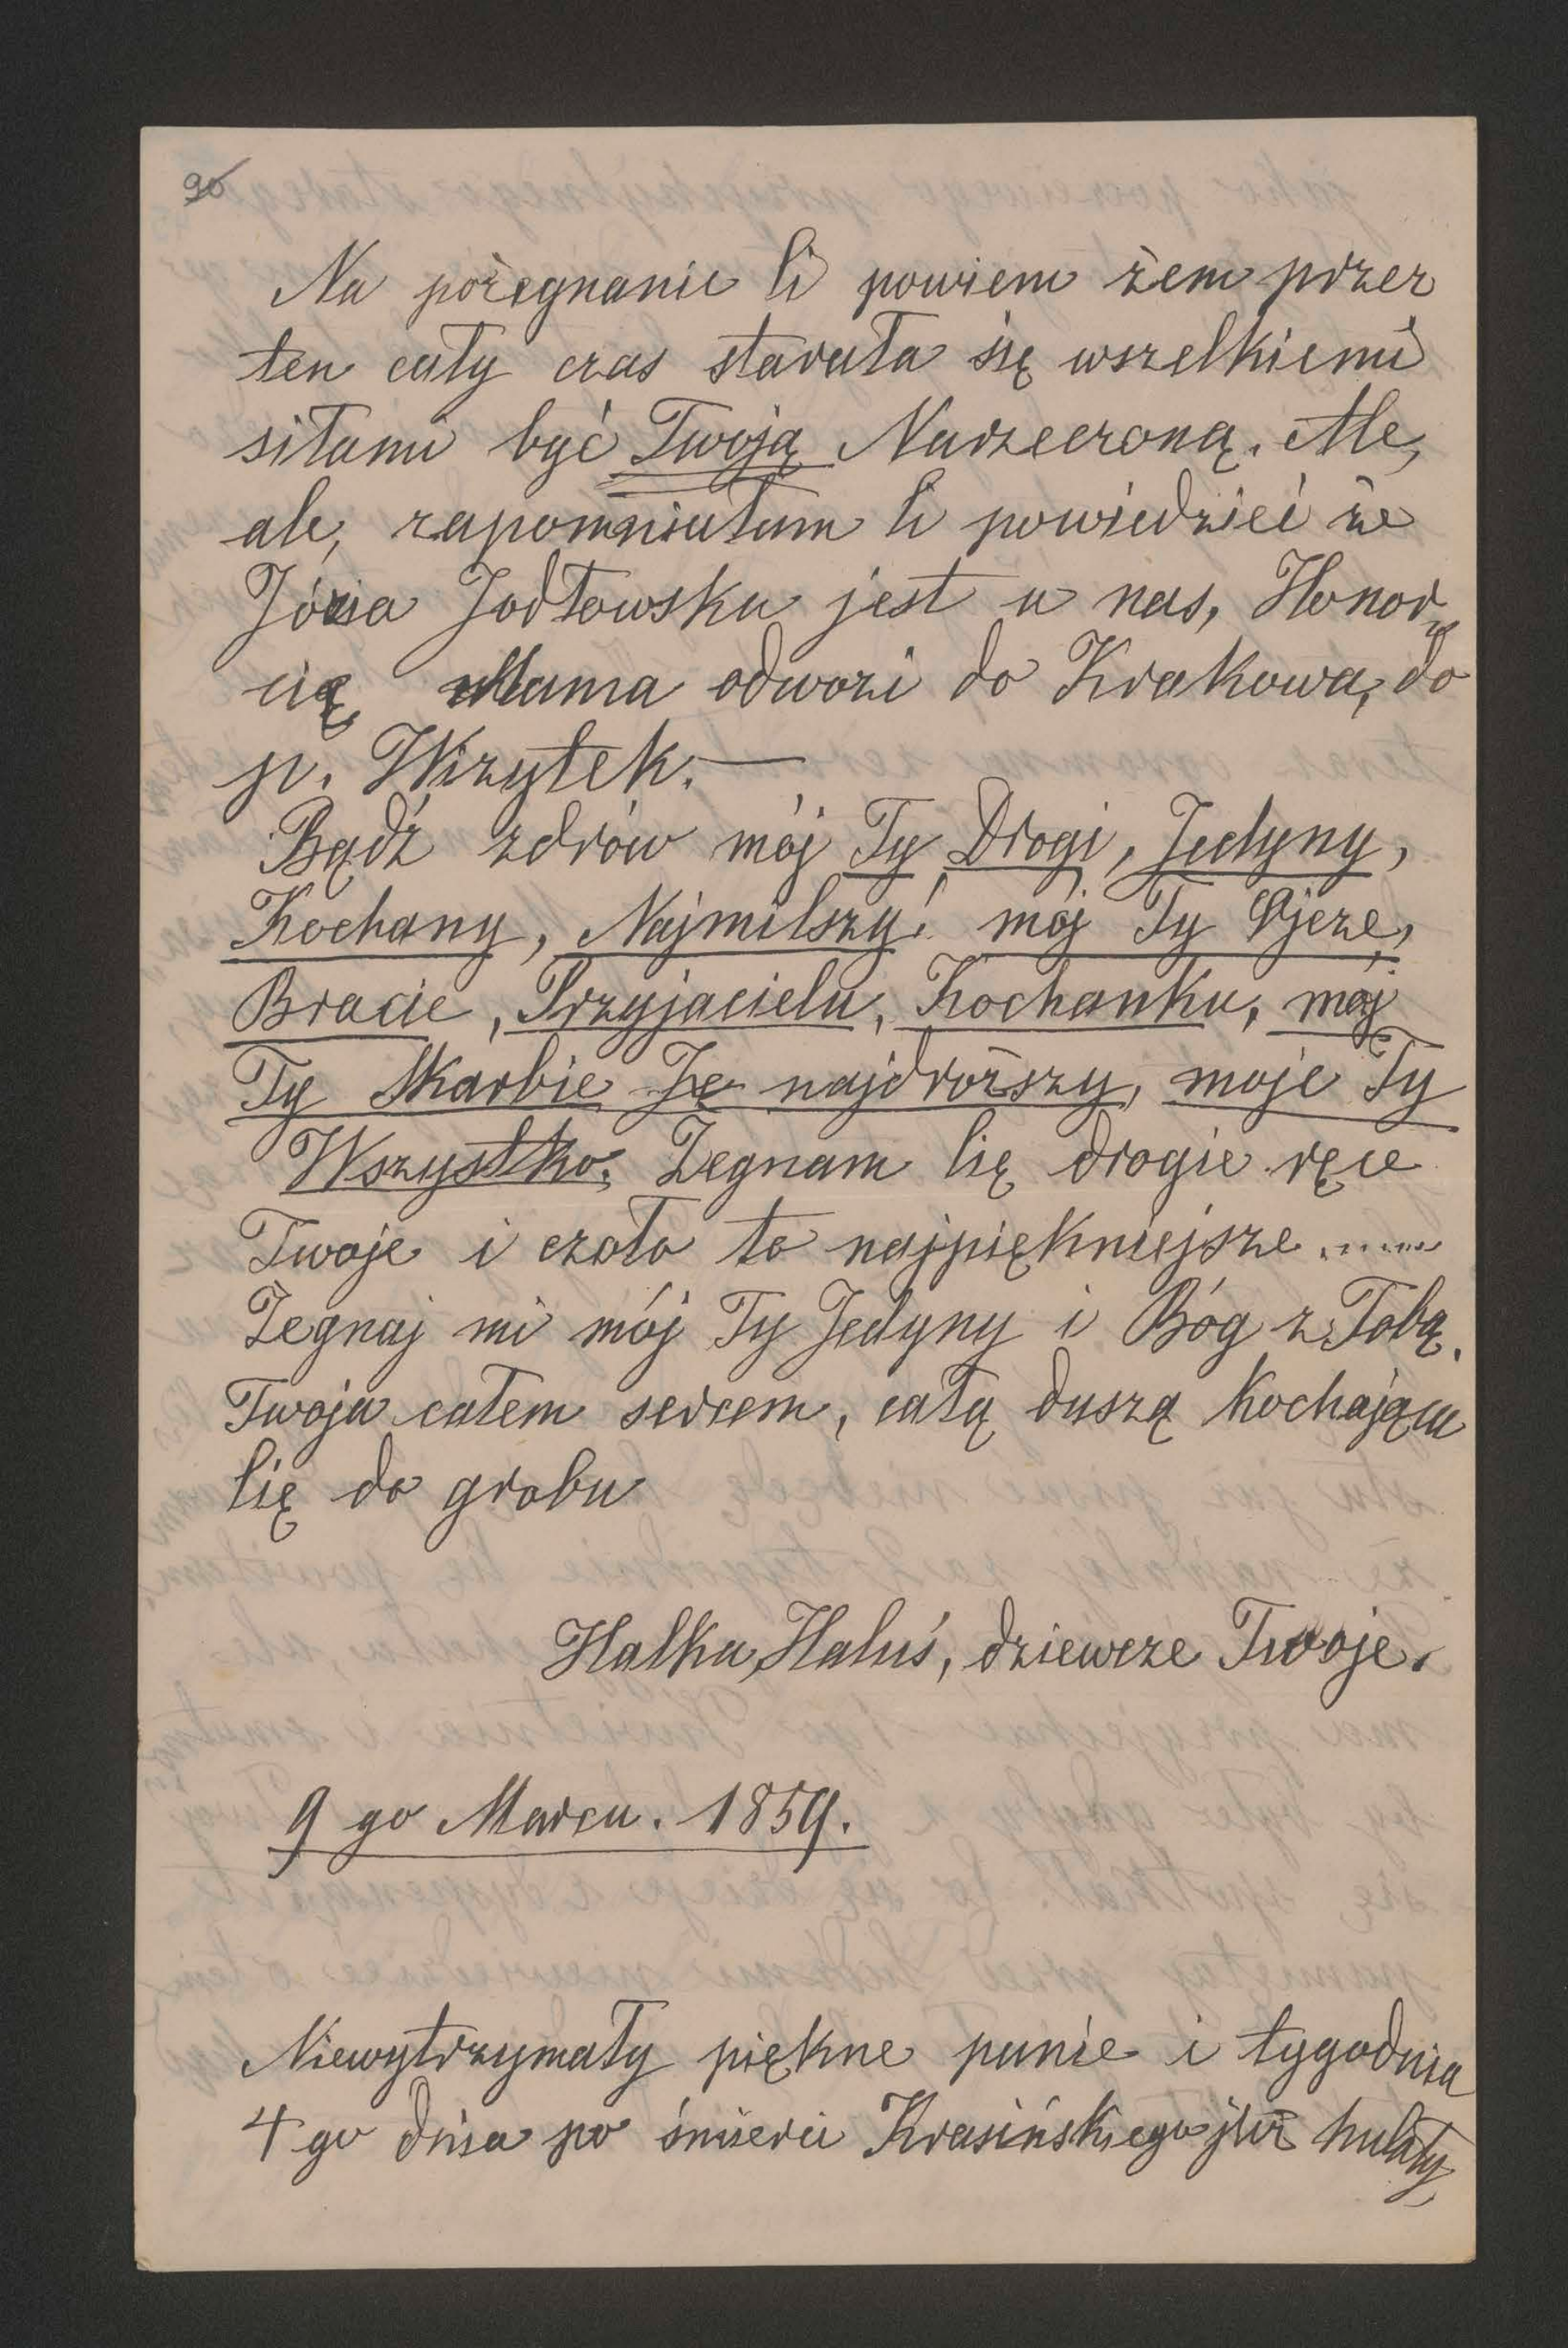 90
Na pożegnanie Ci powiem żem przez
ten cały czas starała się wszelkiemi
siłami być Twoją Narzeczoną. Ale,
ale, zapomniałam Ci powiedzieć że
Józia Jodłowska jest u nas, Honor
cię Mama odwozi do Krakowa, do
p. Wizytek. —
Bądź zdrów mój Ty Drogi, Jedyny,
Kochany, Najmilszy! mój Ty Ojcze,
Bracie, Przyjacielu, Kochanku, mój
Ty Skarbie najdroższy, moje Ty
Wszystko. Żegnam Cię drogie ręce
Twoje i czoło to najpiękniejsze ......
Żegnaj mi mój Ty Jedyny i Bóg z Tobą.
Twoja całem sercem, całą duszą kochająca
Cię do grobu
Halka, Haluś, dziewcze Twoje.
9 go Marca. 1859.
Niewytrzymały piękne panie i tygodnia
4 go dnia po śmierci Krasińskiego już hulały